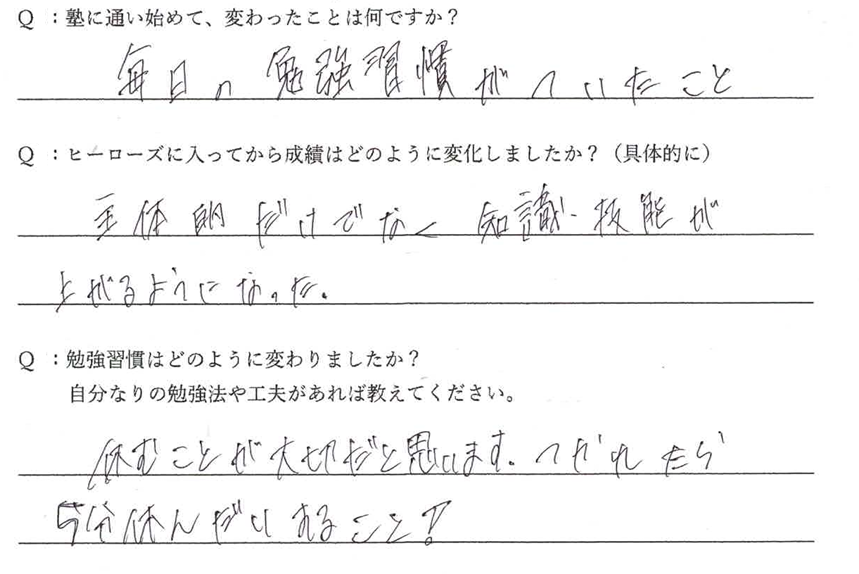 Q ：塾に通い始めて、変わったことは何ですか？
毎日の勉強習慣がついたこと
Q ：ヒーローズに入ってから成績はどのように変化しましたか？（具体的に）
主体的だけでなく知識・技能が
上がるようになった。
Q ：勉強習慣はどのように変わりましたか？
自分なりの勉強法や工夫があれば教えてください。
休むことが大切だと思います。つかれたら
5分休んだりすること！